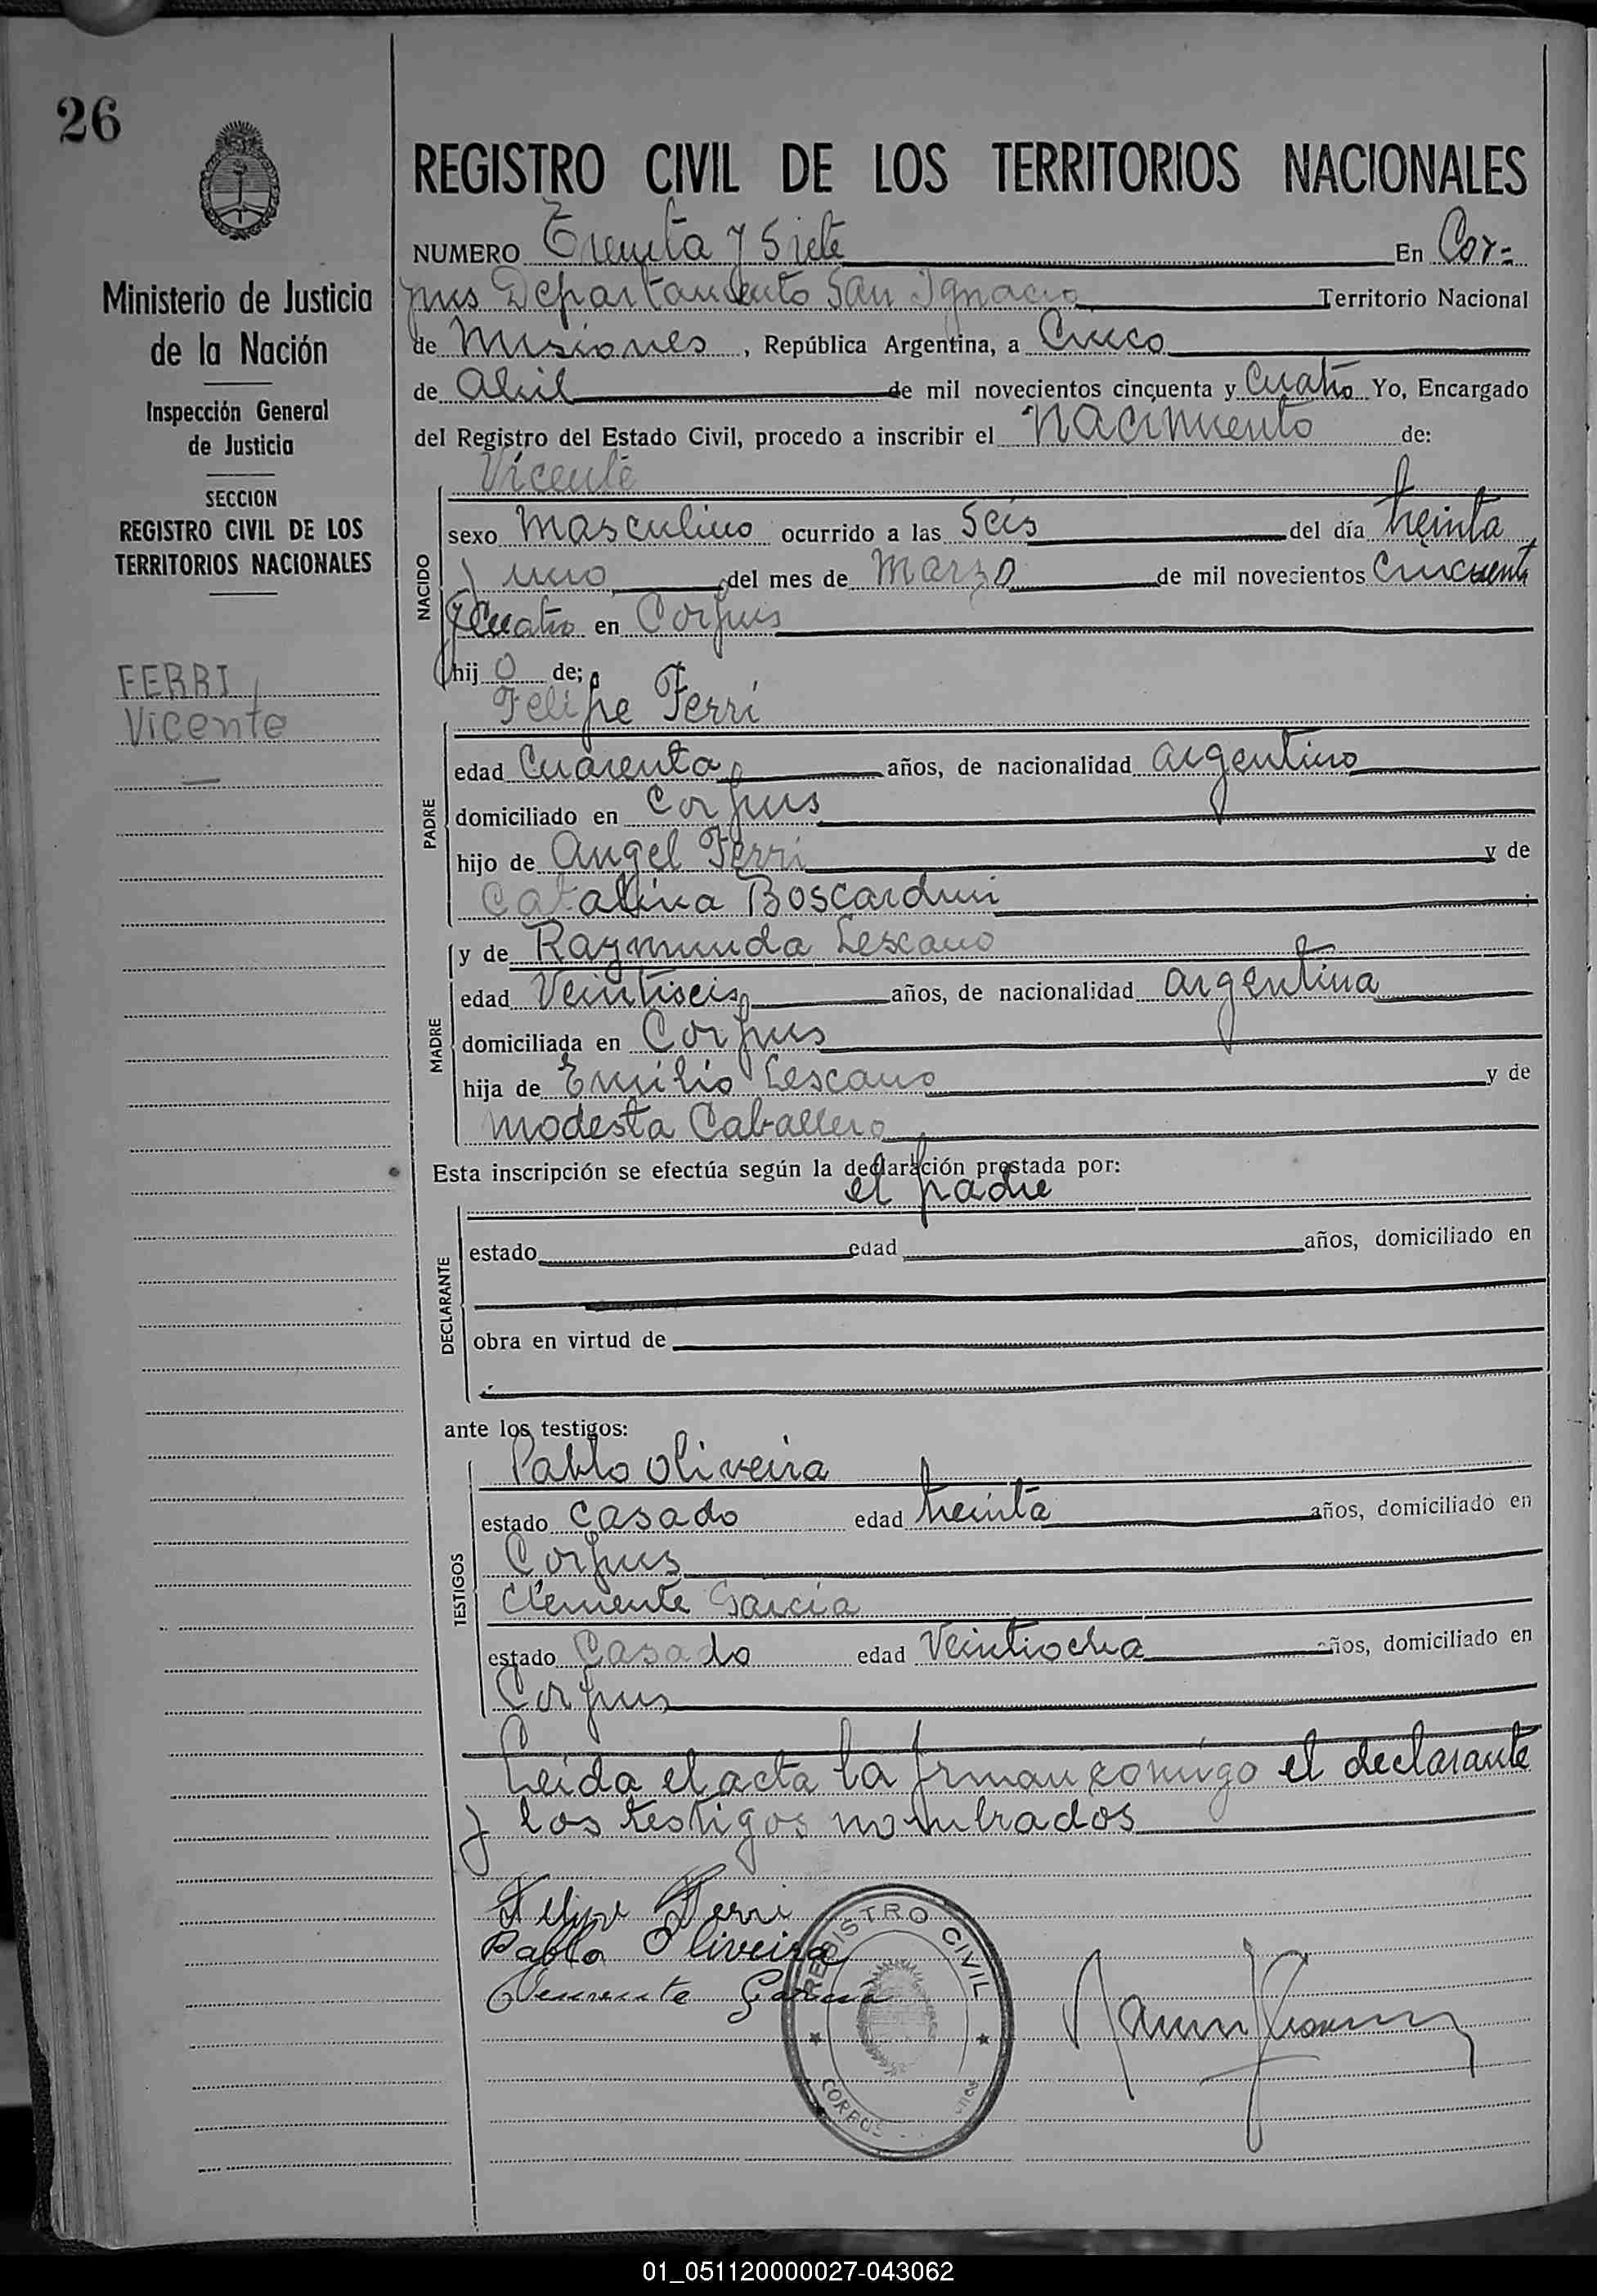 26
REGISTRO CIVIL DE LOS TERRITORIOS NACIONALES
NUMERO Treinta y Siete En Cor=
pus Departamento San Ignacio Territorio Nacional
de Misiones, República Argentina, a Cinco
de Abril de mil novecientos cincuenta y Cuatro Yo, Encargado
del Registro del Estado Civil, procedo a inscribir el Nacimiento de:
Vicente
NACIDO
sexo Masculino ocurrido a las Seis del día treinta
y uno del mes de Marzo de mil novecientos Cincuenta
y Cuatro en Corpus
hijo de;
Felipe Ferri
PADRE
edad Cuarenta años, de nacionalidad argentino
domiciliado en Corpus
hijo de Angel Ferri y de
Catalina Boscardin
y de Raymunda Lescano
MADRE
edad Veintiseis años, de nacionalidad argentina
domiciliada en Corpus
hija de Emilio Lescano y de
Modesta Caballero
Esta inscripción se efectúa según la declaración prestada por:
el padre
DECLARANTE
estado edad años, domiciliado en
obra en virtud de
ante los testigos:
Pablo Oliveira
TESTIGOS
estado Casado edad treinta años, domiciliado en
Corpus
Clemente García
estado Casado edad Veintiocho años, domiciliado en
Corpus
Leída el acta la firman comigo el declarante
y los testigos nombrados
Felipe Ferri
Pablo Oliveira
Clemente García
REGISTRO CIVIL
CORPUS
Ministerio de Justicia
de la Nación
Inspección General
de Justicia
SECCION
REGISTRO CIVIL DE LOS
TERRITORIOS NACIONALES
FERRI
Vicente
01_051120000027-043062